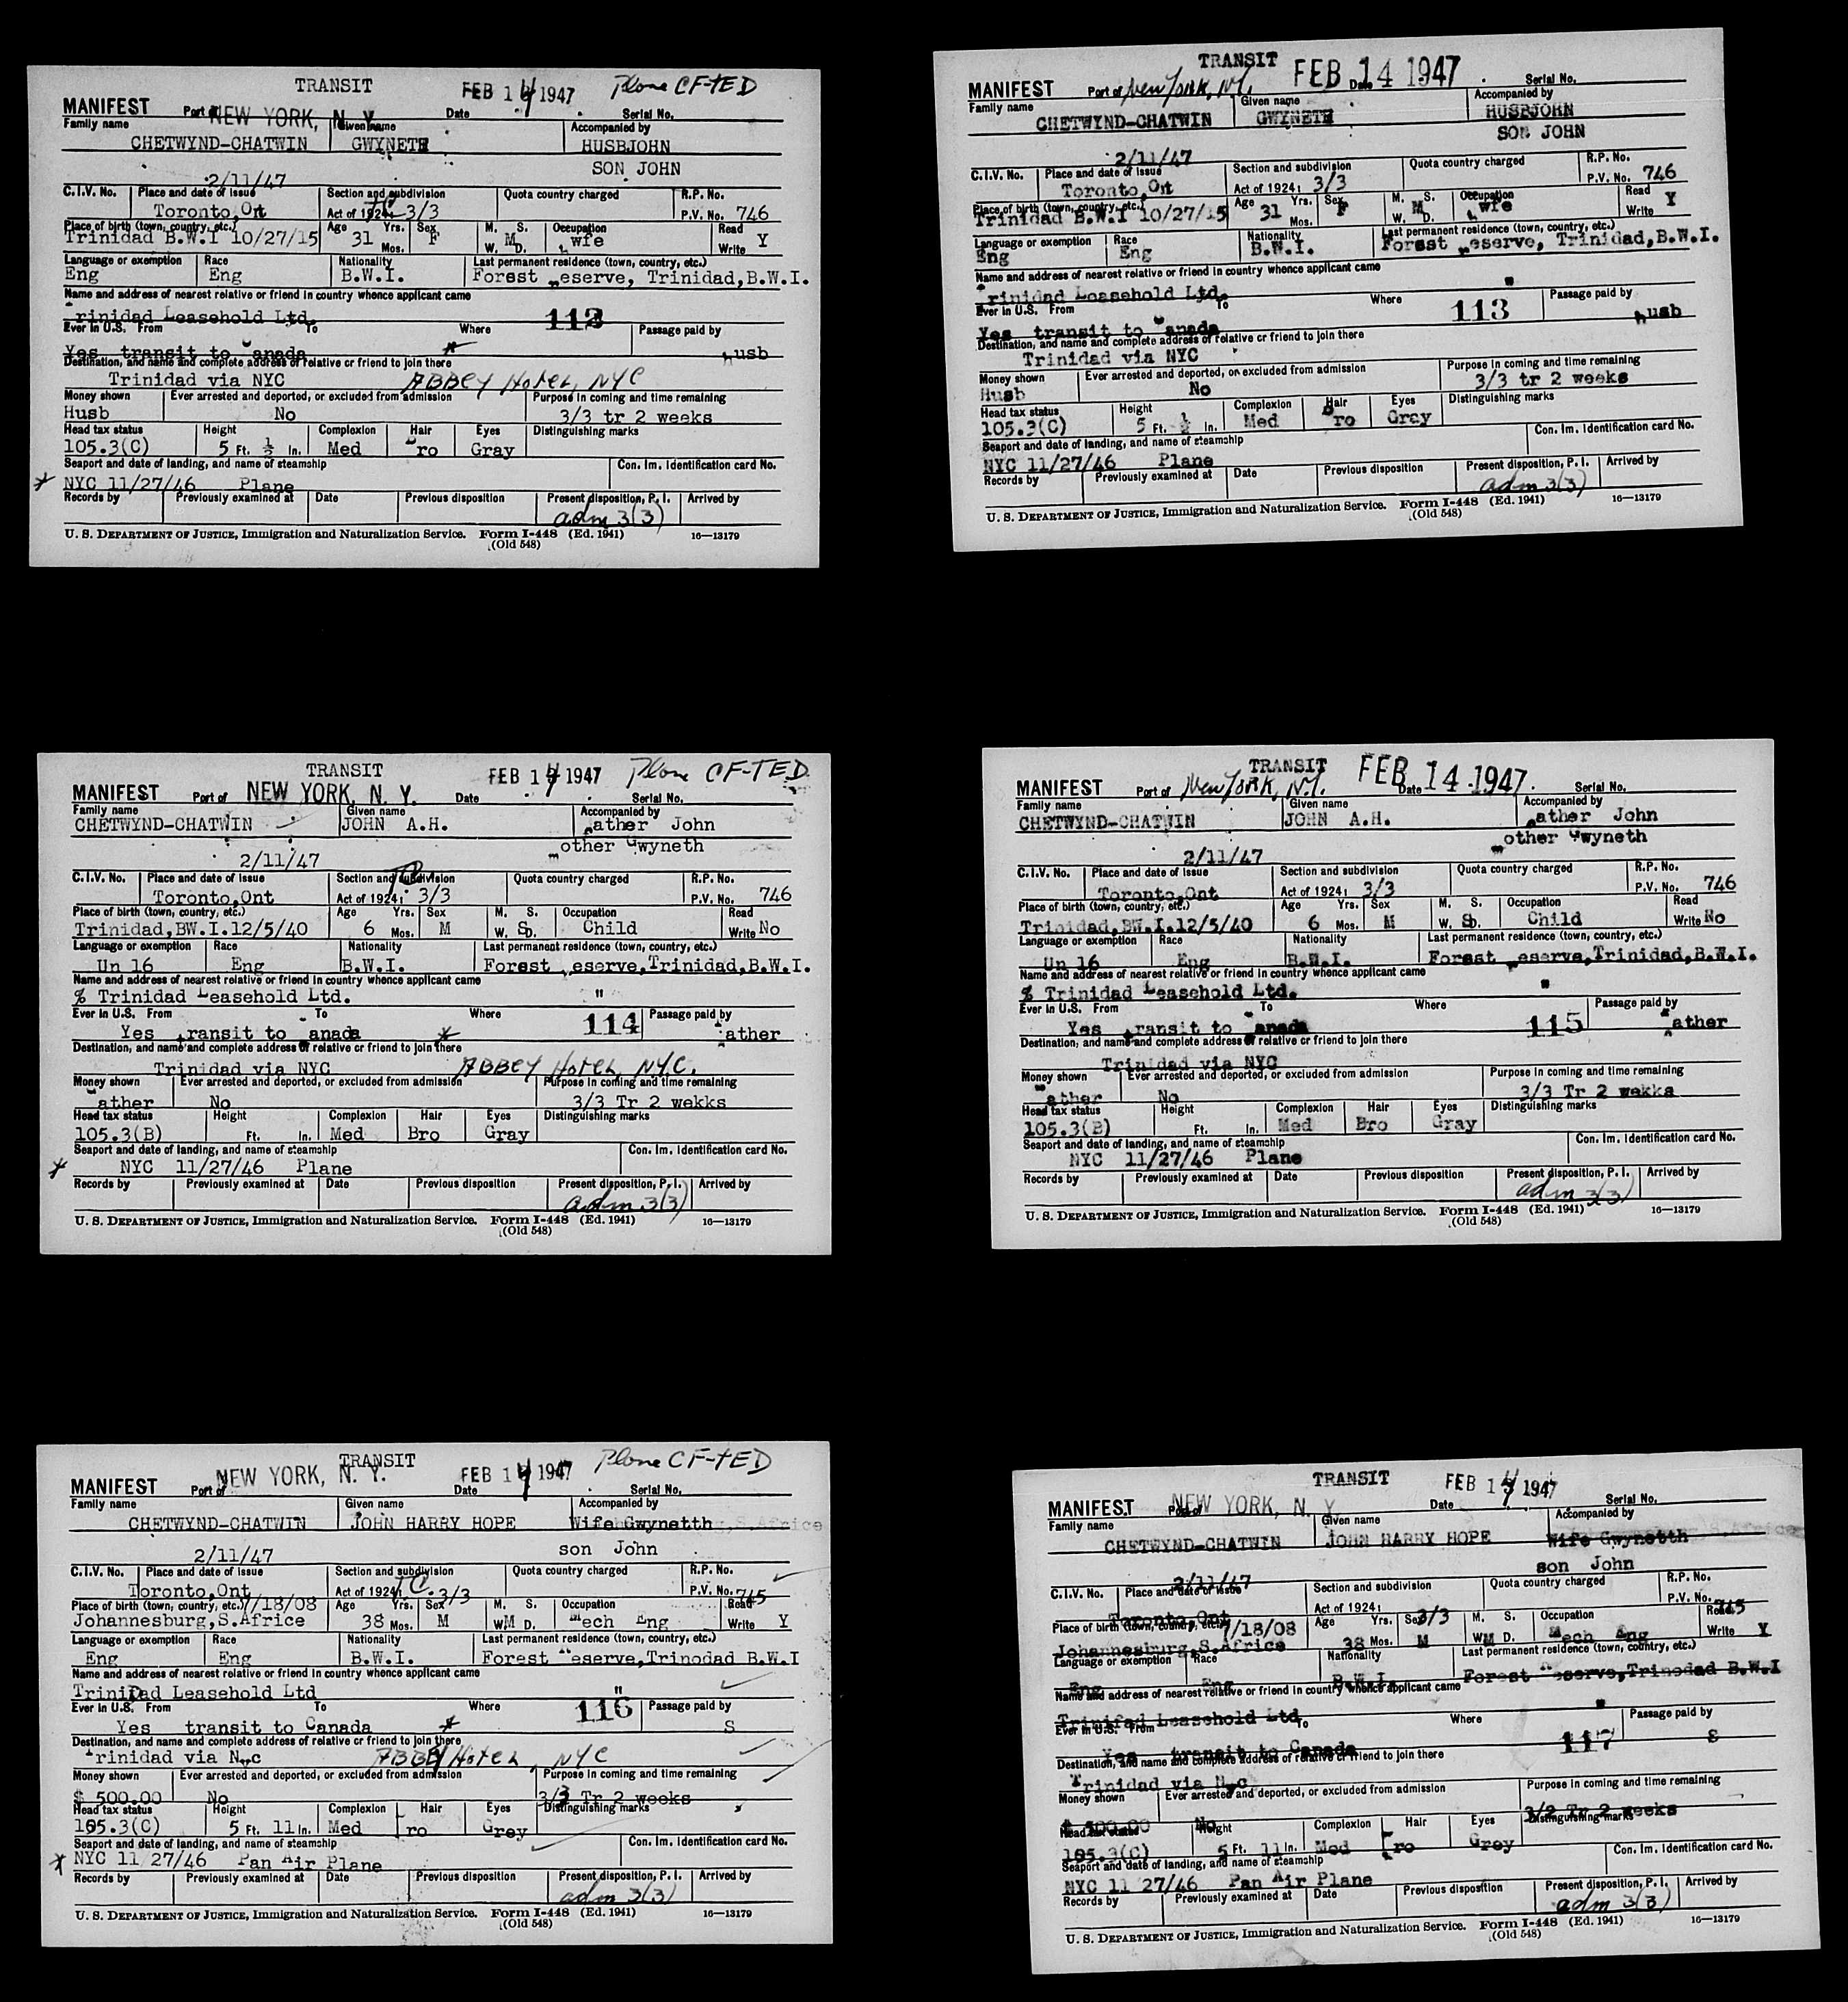 TRANSIT FEB 14 1947 Plane CF-TED
MANIFEST Port of NEW YORK, N. Y. Date Serial No.
Family name Given name Accompanied by
CHETWYND-CHATWIN GWYNETH HUSBJOHN
SON JOHN
2/11/47
C.I.V. No. Place and date of issue Section and subdivision Quota country charged R.P. No.
Toronto,Ont Act of 1924: 3/3 P.V. No. 746
Place of birth (town, country, etc.) Age Yrs. Sex M. S. Occupation Read
Trinidad B.W.I 10/27/15 31 Mos. F W. M D. wfe Write Y
Language or exemption Race Nationality Last permanent residence (town, country, etc.)
Eng Eng B.W.I. Forest reserve, Trinidad,B.W.I.
Name and address of nearest relative or friend in country whence applicant came
Trinidad Leasehold Ltd.
Ever in U.S. From To Where 112 Passage paid by
Yes transit to Canada husb
Destination, and name and complete address of relative or friend to join there
Trinidad via NYC ABBEY HOTEL, NYC
Money shown Ever arrested and deported, or excluded from admission Purpose in coming and time remaining
Husb No 3/3 tr 2 weeks
Head tax status Height Complexion Hair Eyes Distinguishing marks
105.3(C) 5 Ft. ½ In. Med Bro Gray
Seaport and date of landing, and name of steamship Con. Im. Identification card No.
* NYC 11/27/46 Plane
Records by Previously examined at Date Previous disposition Present disposition, P. I. Arrived by
adm 3(3)
U. S. DEPARTMENT OF JUSTICE, Immigration and Naturalization Service. Form I-448 (Ed. 1941) 16—13179
(Old 548)
TRANSIT FEB 14 1947
MANIFEST Port of New York, N.Y. Date Serial No.
Family name Given name Accompanied by
CHETWYND-CHATWIN GWYNETH HUSBJOHN
SON JOHN
2/11/47
C.I.V. No. Place and date of issue Section and subdivision Quota country charged R.P. No.
Toronto,Ont Act of 1924: 3/3 P.V. No. 746
Place of birth (town, country, etc.) Age Yrs. Sex M. S. Occupation Read
Trinidad B.W.I 10/27/15 31 Mos. F W. M D. wfe Write Y
Language or exemption Race Nationality Last permanent residence (town, country, etc.)
Eng Eng B.W.I. Forest reserve, Trinidad,B.W.I.
Name and address of nearest relative or friend in country whence applicant came
Trinidad Leasehold Ltd. "
Ever in U.S. From To Where 113 Passage paid by
Yes transit to Canada husb
Destination, and name and complete address of relative or friend to join there
Trinidad via NYC
Money shown Ever arrested and deported, or excluded from admission Purpose in coming and time remaining
Husb No 3/3 tr 2 weeks
Head tax status Height Complexion Hair Eyes Distinguishing marks
105.3(C) 5 Ft. ½ In. Med Bro Gray
Seaport and date of landing, and name of steamship Con. Im. Identification card No.
NYC 11/27/46 Plane
Records by Previously examined at Date Previous disposition Present disposition, P. I. Arrived by
adm 3(3)
U. S. DEPARTMENT OF JUSTICE, Immigration and Naturalization Service. Form I-448 (Ed. 1941) 16—13179
(Old 548)
TRANSIT FEB 14 1947 Plane CF-TED
MANIFEST Port of NEW YORK, N. Y. Date Serial No.
Family name Given name Accompanied by
CHETWYND-CHATWIN JOHN A.H. Father John
mother Gwyneth
2/11/47
C.I.V. No. Place and date of issue Section and subdivision Quota country charged R.P. No.
Toronto,Ont Act of 1924: 3/3 P.V. No. 746
Place of birth (town, country, etc.) Age Yrs. Sex M. S. Occupation Read
Trinidad,BW.I.12/5/40 6 Mos. M W. S D. Child Write No
Language or exemption Race Nationality Last permanent residence (town, country, etc.)
Un 16 Eng B.W.I. Forest reserve,Trinidad,B.W.I.
Name and address of nearest relative or friend in country whence applicant came
% Trinidad Leasehold Ltd. "
Ever in U.S. From To Where 114 Passage paid by
Yes transit to Canada * Father
Destination, and name and complete address of relative or friend to join there
Trinidad via NYC ABBEY HOTEL, NYC.
Money shown Ever arrested and deported, or excluded from admission Purpose in coming and time remaining
Father No 3/3 Tr 2 wekks
Head tax status Height Complexion Hair Eyes Distinguishing marks
105.3(B) Ft. In. Med Bro Gray
Seaport and date of landing, and name of steamship Con. Im. Identification card No.
* NYC 11/27/46 Plane
Records by Previously examined at Date Previous disposition Present disposition, P. I. Arrived by
adm 3(3)
U. S. DEPARTMENT OF JUSTICE, Immigration and Naturalization Service. Form I-448 (Ed. 1941) 16—13179
(Old 548)
TRANSIT FEB 14 1947
MANIFEST Port of New York, N.Y. Date Serial No.
Family name Given name Accompanied by
CHETWYND-CHATWIN JOHN A.H. Father John
mother Gwyneth
2/11/47
C.I.V. No. Place and date of issue Section and subdivision Quota country charged R.P. No.
Toronto,Ont Act of 1924: 3/3 P.V. No. 746
Place of birth (town, country, etc.) Age Yrs. Sex M. S. Occupation Read
Trinidad,BW.I.12/5/40 6 Mos. M W. S D. Child Write No
Language or exemption Race Nationality Last permanent residence (town, country, etc.)
Un 16 Eng B.W.I. Forest reserve,Trinidad,B.W.I.
Name and address of nearest relative or friend in country whence applicant came
% Trinidad Leasehold Ltd. "
Ever in U.S. From To Where 115 Passage paid by
Yes transit to Canada Father
Destination, and name and complete address of relative or friend to join there
Trinidad via NYC
Money shown Ever arrested and deported, or excluded from admission Purpose in coming and time remaining
Father No 3/3 Tr 2 wekks
Head tax status Height Complexion Hair Eyes Distinguishing marks
105.3(B) Ft. In. Med Bro Gray
Seaport and date of landing, and name of steamship Con. Im. Identification card No.
NYC 11/27/46 Plane
Records by Previously examined at Date Previous disposition Present disposition, P. I. Arrived by
adm 3(3)
U. S. DEPARTMENT OF JUSTICE, Immigration and Naturalization Service. Form I-448 (Ed. 1941) 16—13179
(Old 548)
TRANSIT FEB 14 1947 Plane CF-TED
MANIFEST Port of NEW YORK, N. Y. Date Serial No.
Family name Given name Accompanied by
CHETWYND-CHATWIN JOHN HARRY HOPE Wife Gwynetth
2/11/47 son John
C.I.V. No. Place and date of issue Section and subdivision Quota country charged R.P. No.
Toronto,Ont Act of 1924: 3/3 P.V. No. 745
Place of birth (town, country, etc.) 7/18/08 Age Yrs. Sex M. S. Occupation Read
Johannesburg,S.Africe 38 Mos. M W. M D. Mech Eng Write Y
Language or exemption Race Nationality Last permanent residence (town, country, etc.)
Eng Eng B.W.I. Forest Reserve,Trinodad B.W.I
Name and address of nearest relative or friend in country whence applicant came
TriniDad Leasehold Ltd "
Ever in U.S. From To Where 116 Passage paid by
Yes transit to Canada * S
Destination, and name and complete address of relative or friend to join there
Trinidad via Nyc ABBEY HOTEL, NYC
Money shown Ever arrested and deported, or excluded from admission Purpose in coming and time remaining
$ 500.00 No 3/3 Tr 2 weeks
Head tax status Height Complexion Hair Eyes Distinguishing marks
105.3(C) 5 Ft. 11 In. Med Bro Grey
Seaport and date of landing, and name of steamship Con. Im. Identification card No.
* NYC 11 27/46 Pan Air Plane
Records by Previously examined at Date Previous disposition Present disposition, P. I. Arrived by
adm 3(3)
U. S. DEPARTMENT OF JUSTICE, Immigration and Naturalization Service. Form I-448 (Ed. 1941) 16—13179
(Old 548)
TRANSIT FEB 14 1947
MANIFEST Port of NEW YORK, N. Y Date Serial No.
Family name Given name Accompanied by
CHETWYND-CHATWIN JOHN HARRY HOPE Wife Gwynetth
son John
2/11/47
C.I.V. No. Place and date of issue Section and subdivision Quota country charged R.P. No.
Toronto,Ont Act of 1924: 3/3 P.V. No. 745
Place of birth (town, country, etc.) 7/18/08 Age Yrs. Sex M. S. Occupation Read
Johannesburg,S.Africe 38 Mos. M W. M D. Mech Eng Write Y
Language or exemption Race Nationality Last permanent residence (town, country, etc.)
Eng Eng B.W.I. Forest Reserve,Trinodad B.W.I
Name and address of nearest relative or friend in country whence applicant came
Trinidad Leasehold Ltd "
Ever in U.S. From To Where 117 Passage paid by
Yes transit to Canada S
Destination, and name and complete address of relative or friend to join there
Trinidad via Nyc
Money shown Ever arrested and deported, or excluded from admission Purpose in coming and time remaining
$ 500.00 No 3/3 Tr 2 weeks
Head tax status Height Complexion Hair Eyes Distinguishing marks
105.3(C) 5 Ft. 11 In. Med Bro Grey
Seaport and date of landing, and name of steamship Con. Im. Identification card No.
NYC 11 27/46 Pan Air Plane
Records by Previously examined at Date Previous disposition Present disposition, P. I. Arrived by
adm 3(3)
U. S. DEPARTMENT OF JUSTICE, Immigration and Naturalization Service. Form I-448 (Ed. 1941) 16—13179
(Old 548)